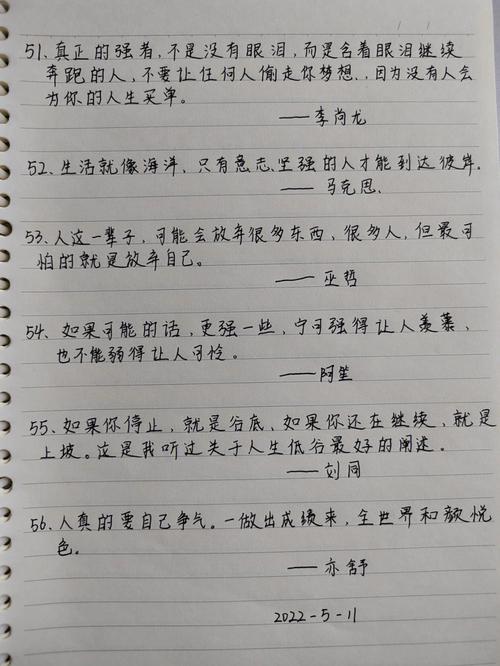 51、真正的强者，不是没有眼泪，而是含着眼泪继续
奔跑的人，不要让任何人偷走你梦想、因为没有人会
为你的人生买单。
——李尚龙
52、生活就像海洋，只有意志、坚强的人才能到达彼岸。
——马克思、
53、人这一辈子，可能会放弃很多东西，很多人，但最可
怕的就是放弃自己。
——巫哲
54、如果可能的话，更强一些，宁可强得让人羡慕，
也不能弱得让人可怜。
——阿笙
55、如果你停止，就是谷底、如果你还在继续，就是
上坡。这是我听过关于人生低谷最好的阐述。
——刘同
56、人真的要自己争气。一做出成绩来，全世界和颜悦
色。
——亦舒
2022-5-11